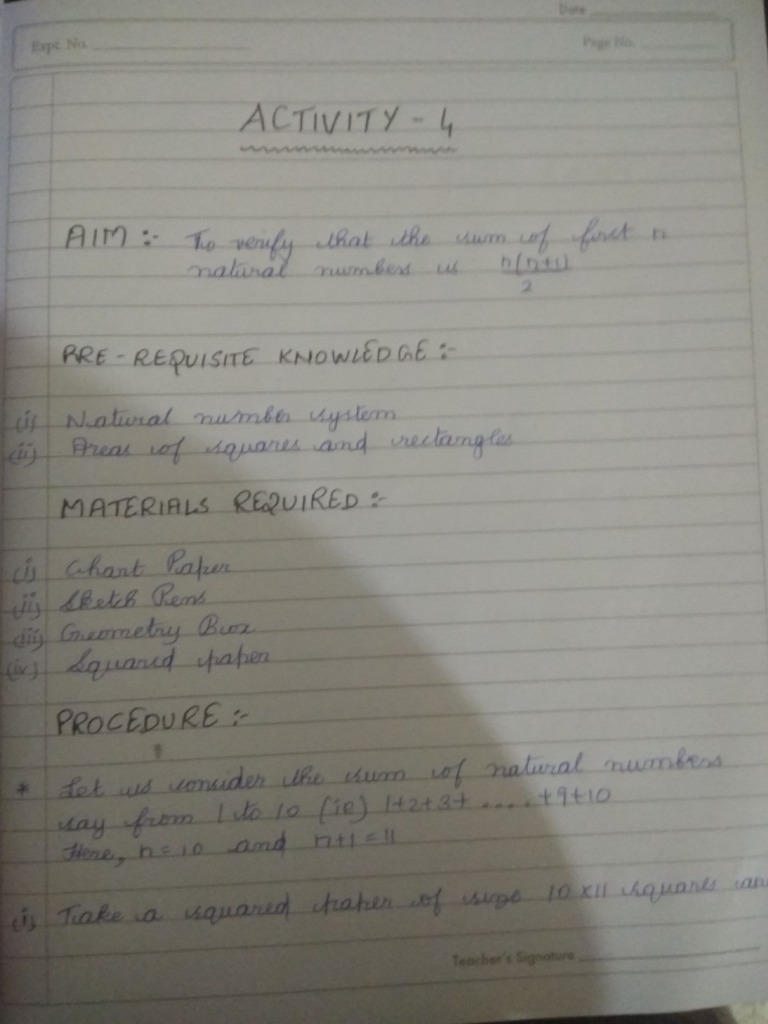 Date
Expt. No.
Page No.
ACTIVITY - 4
AIM :- To verify that the sum of first n
natural numbers is n(n+1)
2
PRE-REQUISITE KNOWLEDGE :-
(i) Natural number system
(ii) Areas of squares and rectangles
MATERIALS REQUIRED :-
(i) Chart Paper
(ii) Sketch Pens
(iii) Geometry Box
(iv) Squared paper
PROCEDURE :-
* Let us consider the sum of natural numbers
say from 1 to 10 (ie) 1+2+3+.....+9+10
Here, n=10 and n+1=11
(i) Take a squared paper of size 10x11 squares
Teacher's Signature